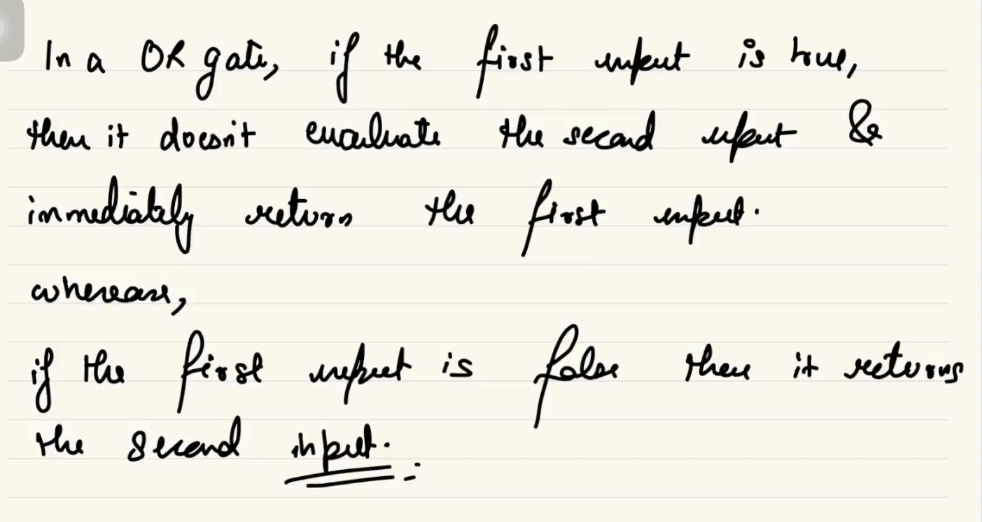 In a OR gate, if the first input is true,
then it doesn't evaluate the second input &
immediately return the first input.
whereas,
if the first input is false then it returns
the second input.